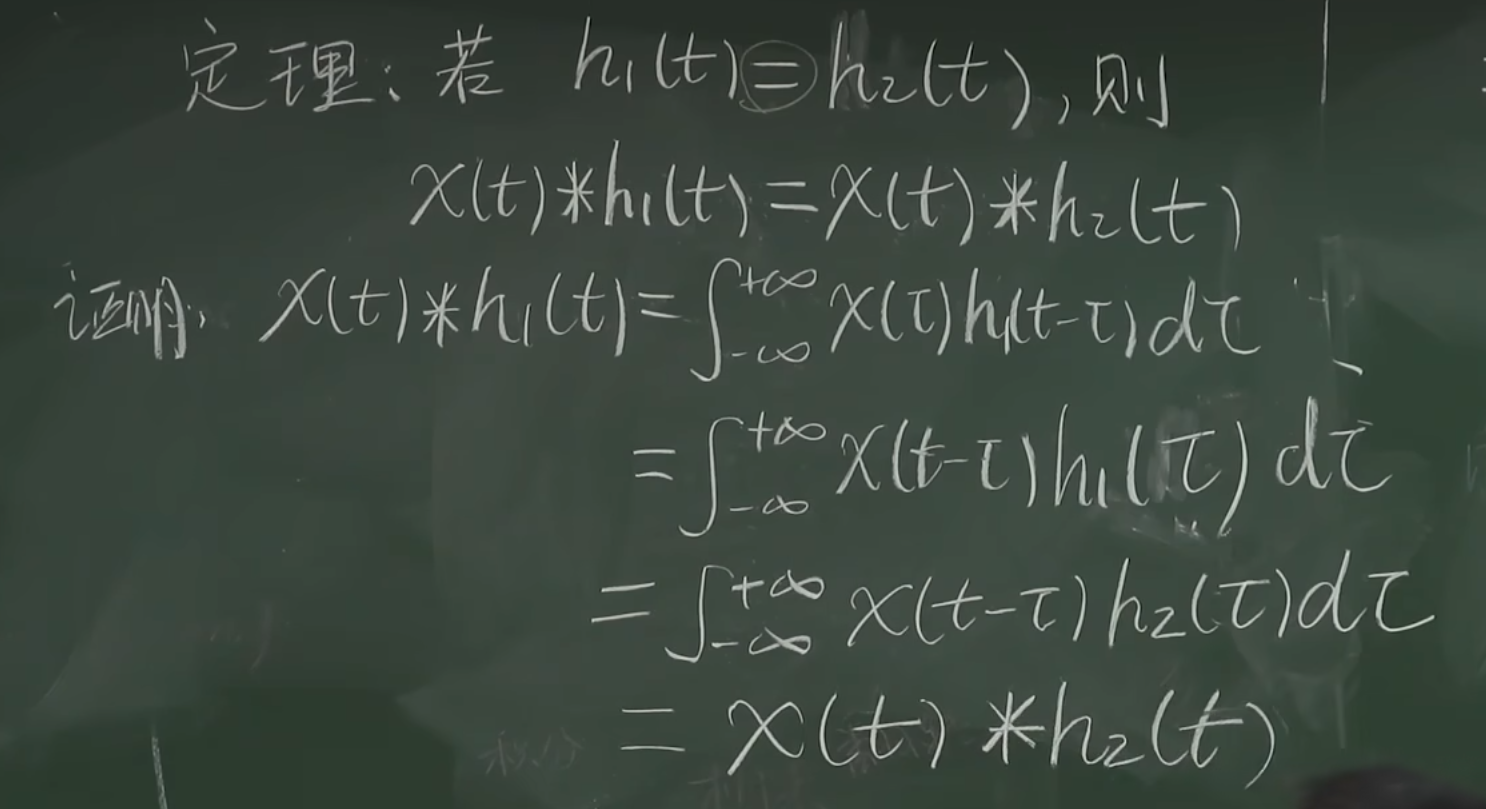 定理: 若 h₁(t)=h₂(t), 则
x(t)*h₁(t)=x(t)*h₂(t)
证明: x(t)*h₁(t)=∫₋∞^+∞ x(τ)h₁(t-τ)dτ
=∫₋∞^+∞ x(t-τ)h₁(τ)dτ
=∫₋∞^+∞ x(t-τ)h₂(τ)dτ
=x(t)*h₂(t)